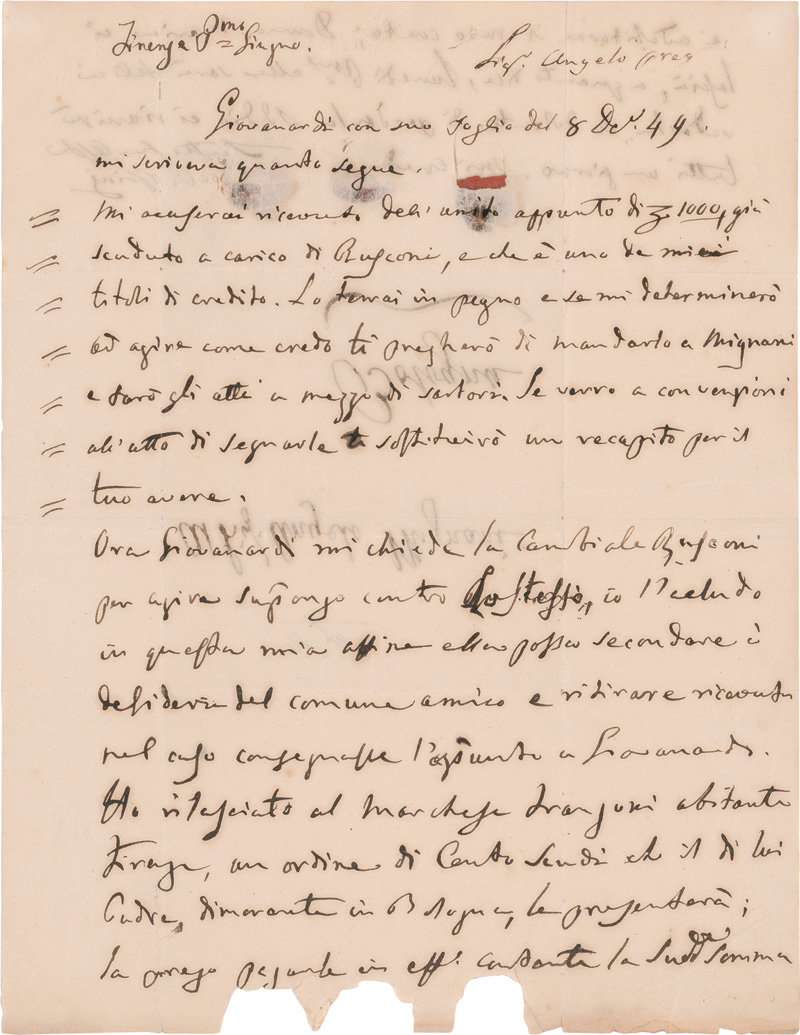 Firenze Pmo Giugno.
Sigr. Angelo preg
Giovanardi con suo foglio del 8 Dce. 49.
mi scriveva quanto segue.
= Mi accuserai ricevuta dell'unito appunto di 1000, già
= scaduto a carico di Rusconi, e che è uno de miei
= titoli di credito. Lo terrai in pegno e se mi determinerò
= ad agire come credo ti pregherò di mandarlo a Mignani
= e farò gli atti a mezzo di Sartori. Se verrò a convenzioni
= all'atto di segnarle ti sostituirò un recapito per il
= tuo avere.
Ora Giovanardi mi chiede la Cambiale Rusconi
per agire supongo contro lo stesso, io l'acludo
in questa mia affine ella possa secondare i
desideri del comune amico e ritirare ricevuta
nel caso consegnasse l'appunto a Giovanardi.
Ho rilasciato al Marchese Frangoni abitante
Firenze, un ordine di Cento Scudi che il di lui
Padre, dimorante in Bologna, le presenterà;
la prego pagarle in effo. contante la Sudda. Somma